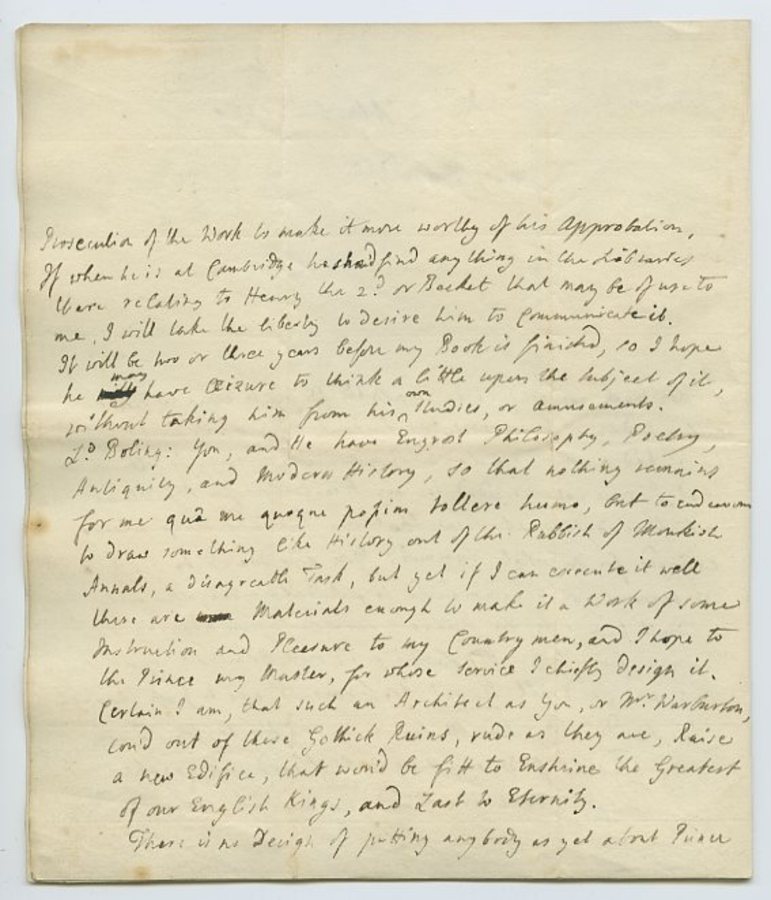 Prosecution of the Work to make it more worthy of his Approbation,
If when he is at Cambridge he shoud find anything in the Libraries
there relating to Henry the 2.d or Becket that may be of use to
me, I will take the liberty to desire him to Communicate it.
It will be two or three years before my Book is finished, so I hope
he may have Leizure to think a little upon the subject of it,
without taking him from his own Studies, or amusements.
L.d Boling: You, and He have Engrost Philosophy, Poetry,
Antiquity, and Modern History, so that nothing remains
for me quâ me quoque possim tollere humo, but to endeavour
to draw something like History out of the Rubbish of Monkish
Annals, a disagreable Task, but yet if I can execute it well
there are Materials enough to make it a Work of some
Instruction and Pleasure to my Countrymen, and I hope to
the Prince my Master, for whose service I chiefly design it.
Certain I am, that such an Architect as You, or Mr. Warburton,
cou'd out of these Gothick Ruins, rude as they are, Raise
a new Edifice, that wou'd be fitt to Enshrine the Greatest
of our English Kings, and Last to Eternity.
There is no Design of putting anybody as yet about Prince